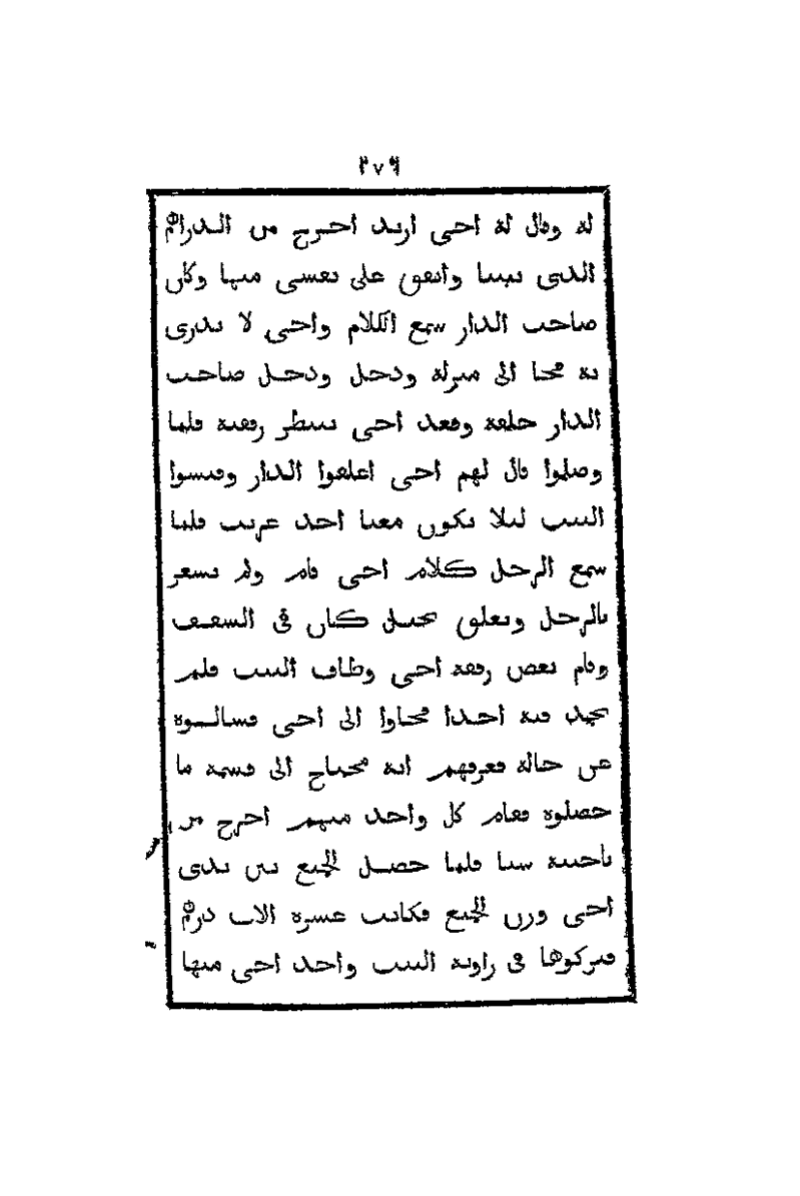 ٢٧٩
له وقال له اخى اريد اخرج من الدراهم
الذى بيننا وانفق على نفسى منها وكان
صاحب الدار سمع الكلام واخى لا يدرى
به فجا الى منزله ودخل ودخل صاحب
الدار خلفه وقعد اخى ينتظر رفقته فلما
وصلوا قال لهم اخى اغلقوا الدار وفتشوا
البيت ليلا يكون معنا احد غريب فلما
سمع الرجل كلام اخى قام ولم يشعر
بالرجل وتعلق بحبل كان فى السقف
وقام بعض رفقه اخى وطاف البيت فلم
يجد فيه احدا فجاوا الى اخى فسالوه
عن حاله فعرفهم انه محتاج الى قسمة ما
حصلوه فقام كل واحد منهم اخرج من
ناحيته شيا فلما حصل الجميع بين يدى
اخى وزن الجميع فكانت عشرة الاف درهم
فتركوها فى زاوية البيت واخد اخى منها